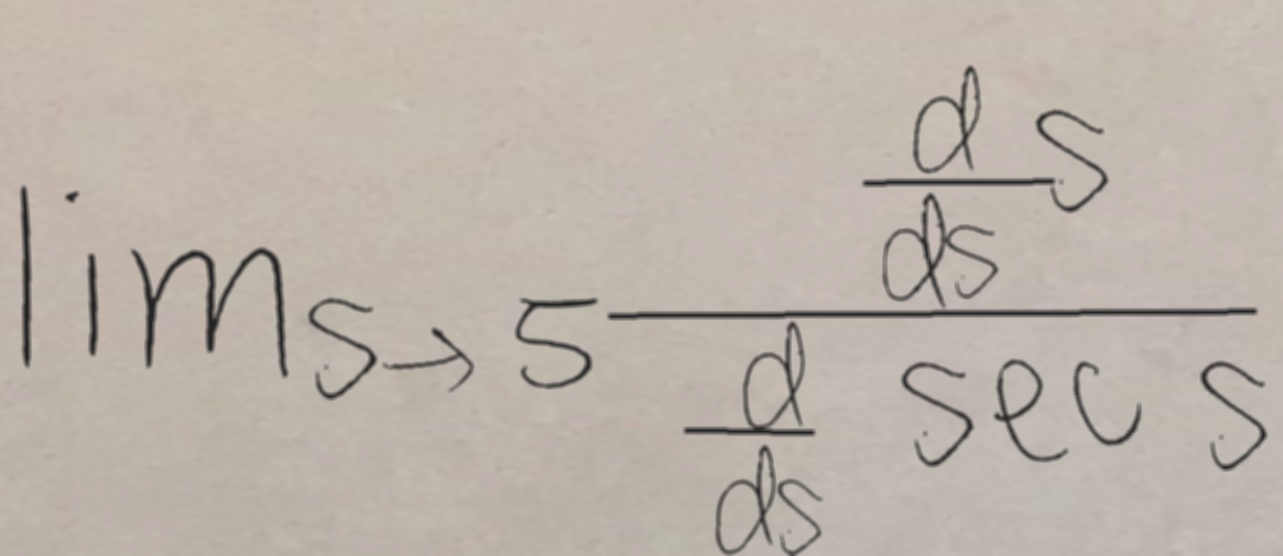 \lim_{s \to 5} \frac{\frac{d}{ds} s}{\frac{d}{ds} \sec s}